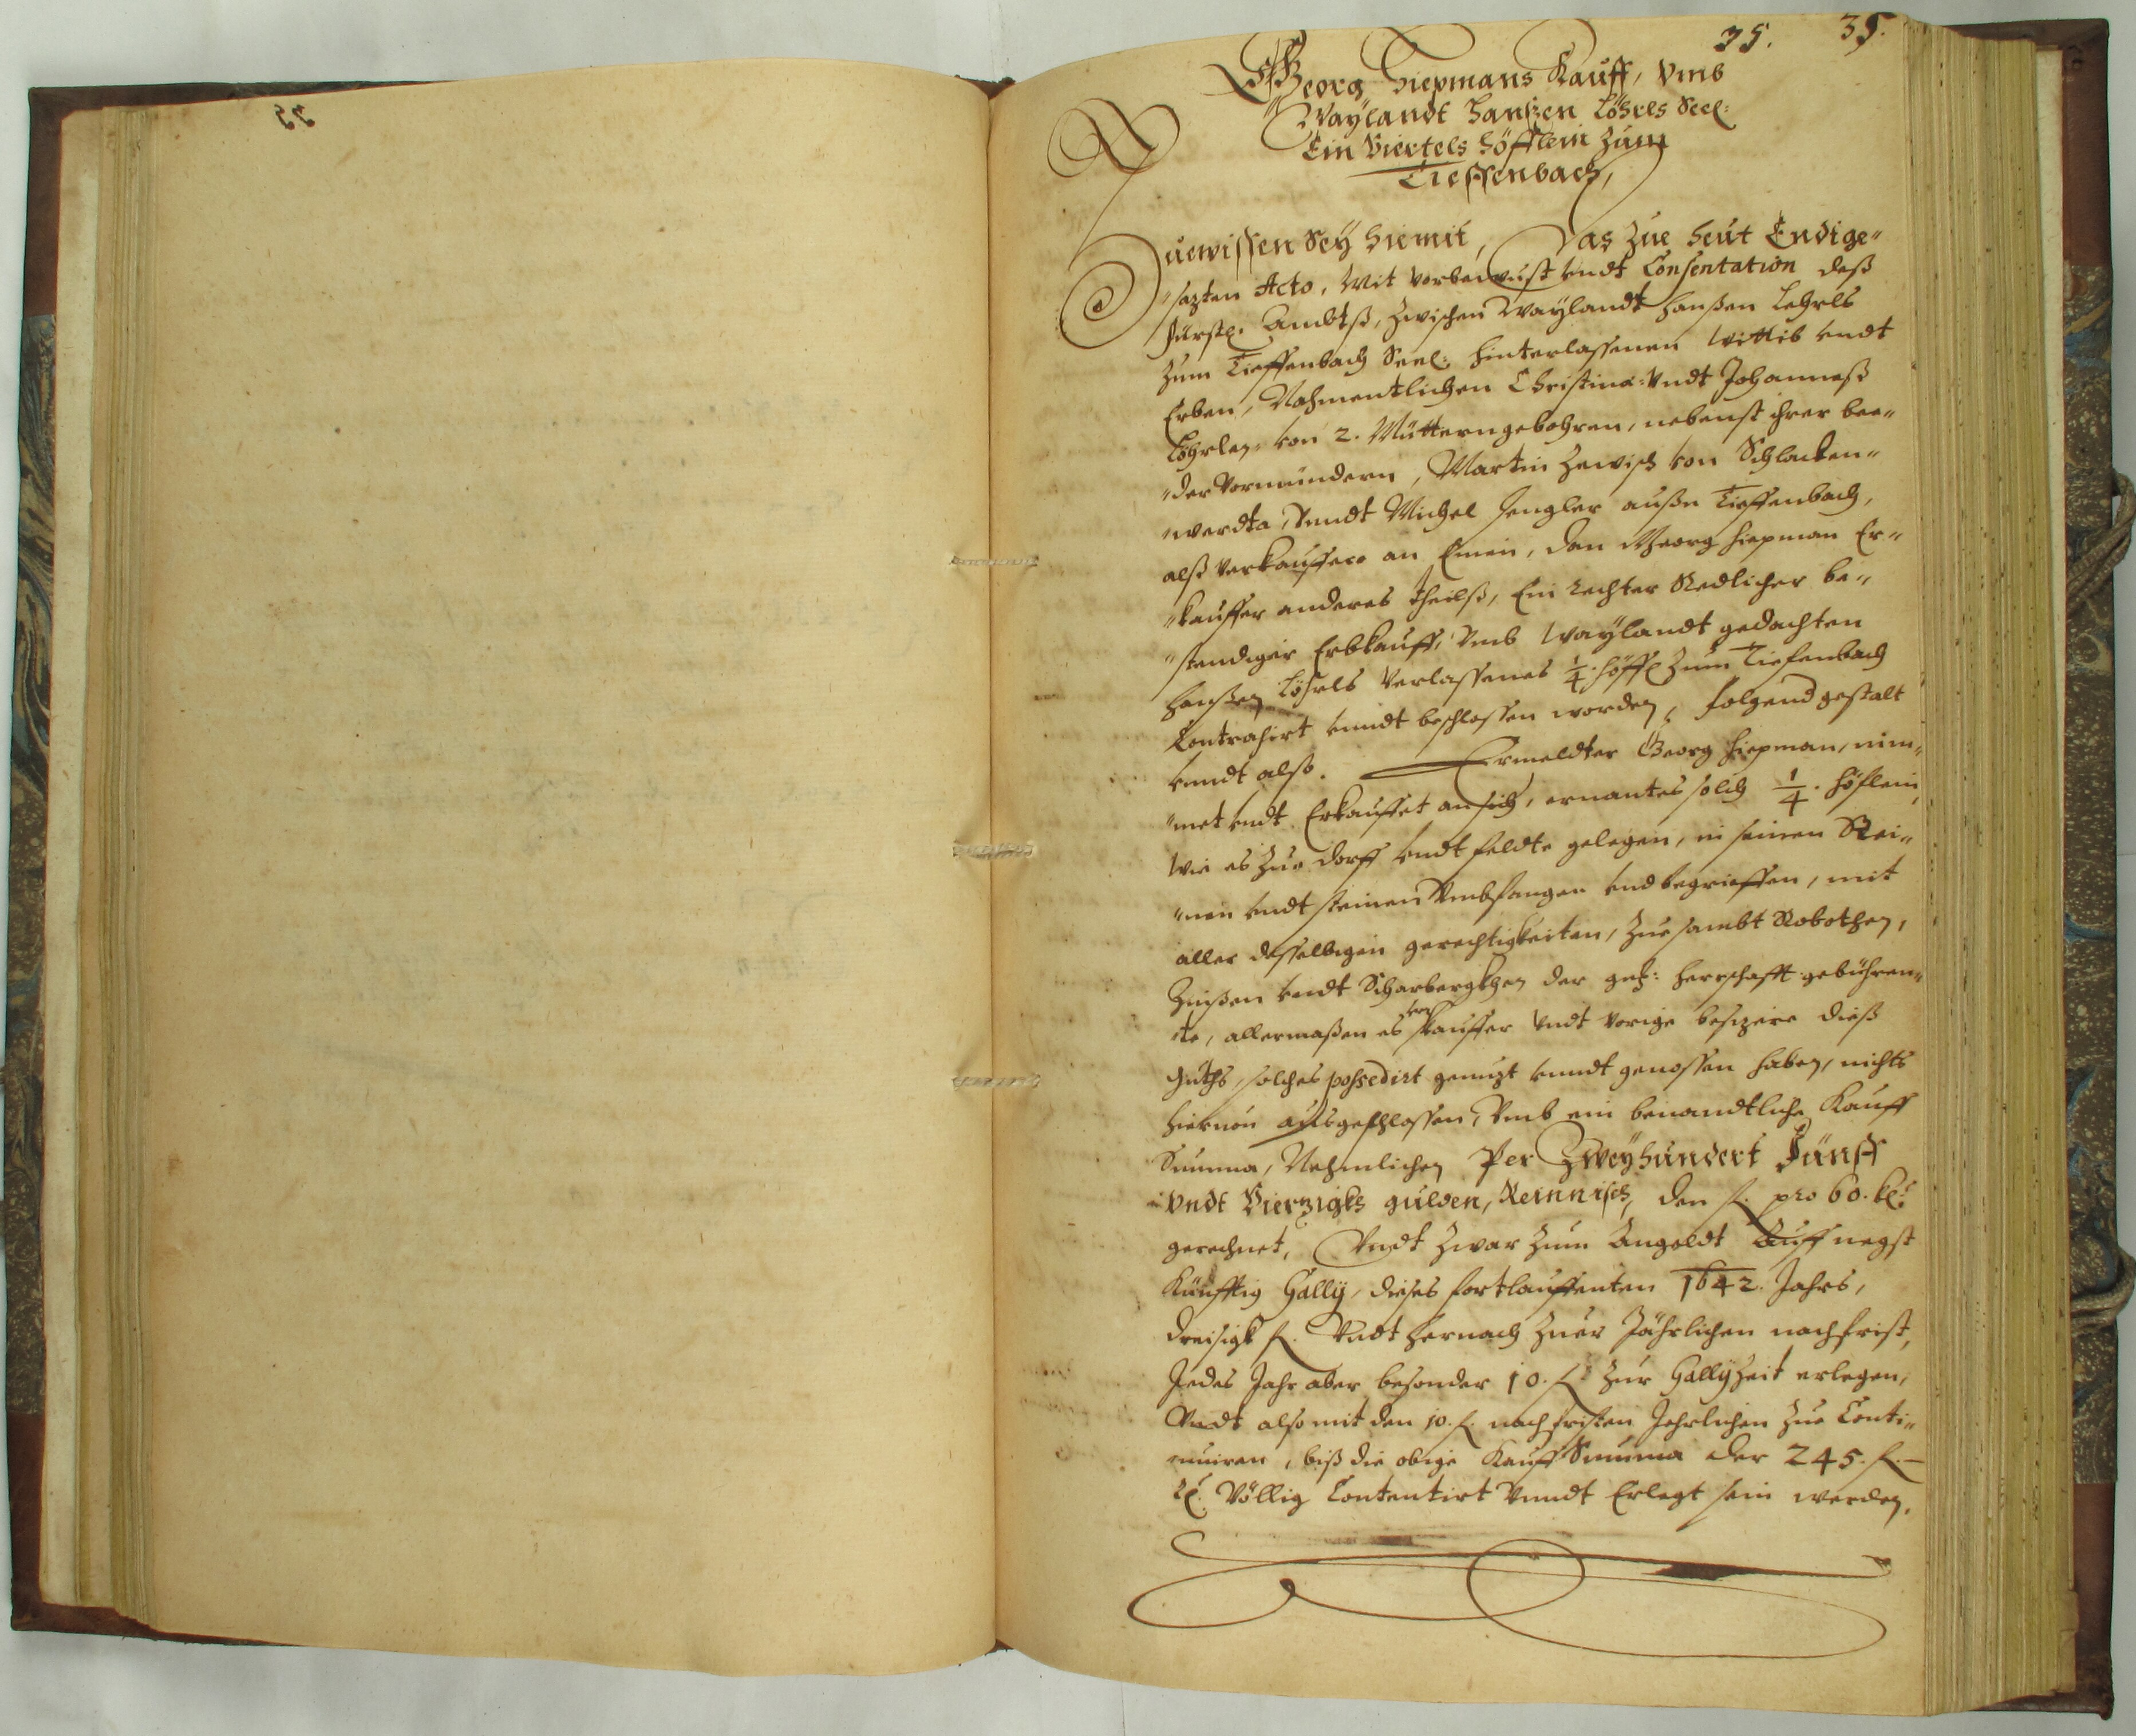 35. 35.
Georg Hiepmans Kauff, Vmb
Waylandt Hanßen Löhrls Seel:
Ein Viertels höfflein Zum
Tieffenbach,
Zuewissen Sey hiemit, Das Zue heut Endige„
„sazten Acto, Mit Vorbewust vndt Consentation deß
Fürstl. Ambtß, Zwischen Waylandt Hanßen Lehrls
Zum Tieffenbach Seel: hinterlassenen Wittib vndt
Erben, Nahmentlichen Christina: Vndt Johanneß
Löhrlen, von 2. Mütterngebohren, nebenst ihrer bee„
„der Vormündern, Martin von Schlacken„
„werdta, Vnndt Michel Hengler außn Tieffenbach,
alß Verkauffere an Einen, dan Georg Hiepman Er„
„kauffer anderes theilß, Ein rechter Redlicher be„
„stendiger Erbkauff, Vmb Waylandt gedachten
Hanßen Löhrls Verlassenes 1/4. höffl Zum Tiefenbach
Contrahirt vnndt beschlossen worden, folgend gestalt
vnndt also. Ermeldter Georg Hiepman, nim„
„met vndt Erkauffet an sich, ernantes solch 1/4. höflein,
Wie es Zue dorff vndt feldte gelegen, in seinen Rei„
„nen vndt steinen Vmbfangen vnd begrieffen, mit
aller desselbigen gerechtigkeiten, Zue sambt Robothen,
Zinßen vndt Scharbergkhen der gnd: herrschafft gebühren„
„te, allermaßen es ver kauffer Vndt Vorige besizere dieß
Guths, solches possedirt genuzt vnndt genossen haben, nichts
hiervon außgeschlossen, Vmb ein benandtliche Kauff
Summa, Nehmlichen Per Zweyhundert Fünff
Vndt Vierzigkh gulden, Reinnisch, den f. pro 60. kr.
gerechnet, Vndt Zwar Zum Angeldt Auff negst
Künfftig Gally, dieses fortlauffenten 1642. Jahrs,
dreisigk f. Vndt hernach Zuer Jährlichen nachfrist,
Jedes Jahr aber besonder 10. f. Zur Gally Zeit erlegen,
Vndt also mit den 10. f. nachfristen Jehrlichen Zue Conti„
„nuiren, biß die obige Kauff Summa der 245. f. —
kr. Völlig Contentirt Vnndt Erlegt sein werden.